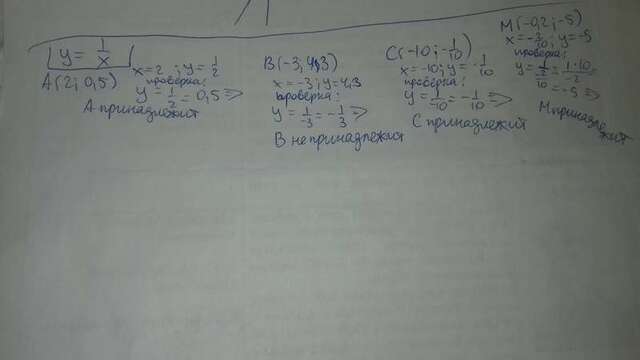 y = 1/x
A(2; 0,5)
x = 2 ; y = 1/2
проверка:
y = 1/2 = 0,5 =>
А принадлежит
B(-3; 4,3)
x = -3; y = 4,3
проверка:
y = 1/-3 = -1/3 =>
В не принадлежит
C(-10; -1/10)
x = -10; y = -1/10
проверка:
y = 1/-10 = -1/10 =>
С принадлежит
M(-0,2; -5)
x = -2/10; y = -5
проверка:
y = 1/-2/10 = 1·10/-2
= -5 =>
М принадлежит